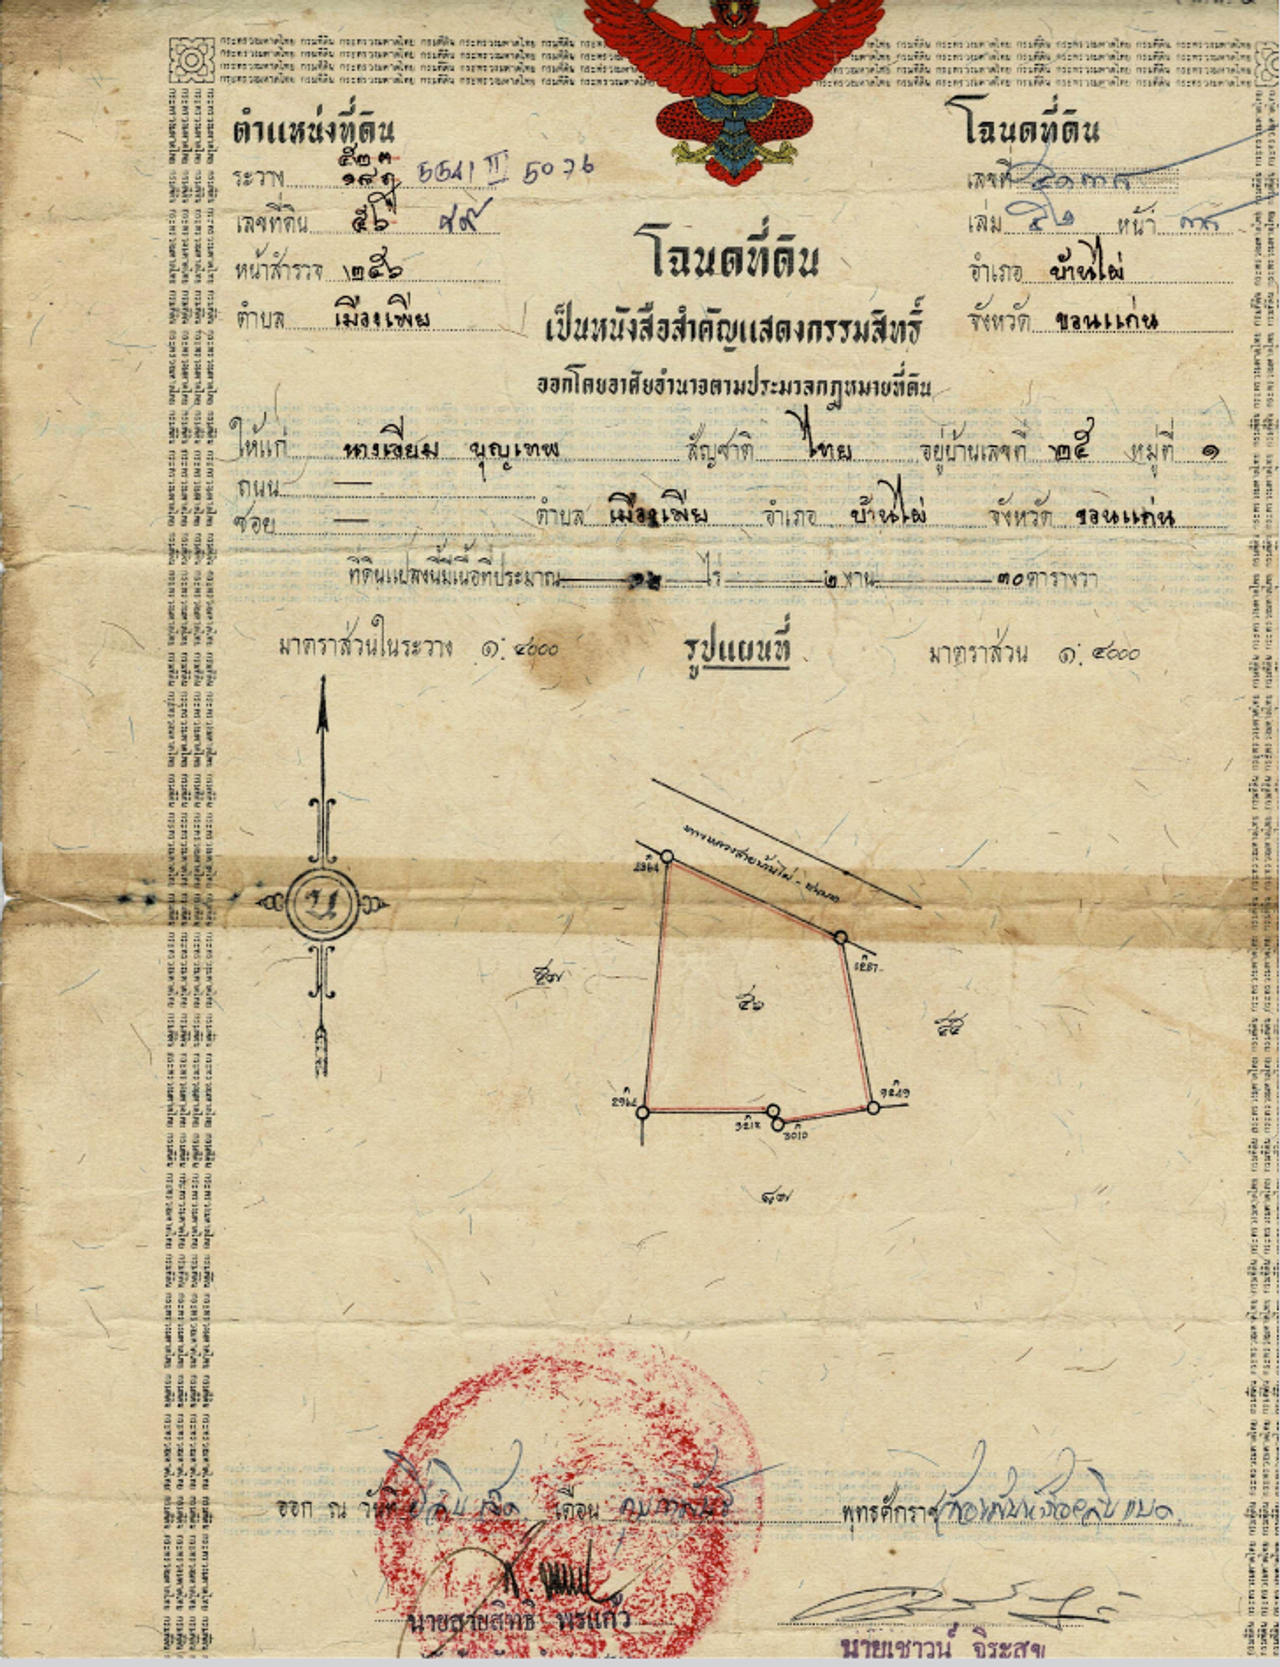 ตำแหน่งที่ดิน
ระวาง ๕๒๓ 5541 II 5076
๑๙๑
เลขที่ดิน ๕๖
หน้าสำรวจ ๒๕๖
ตำบล เมืองเพีย
โฉนดที่ดิน
เลขที่
เล่ม ๕๒ หน้า ๓๘
อำเภอ บ้านไผ่
จังหวัด ขอนแก่น
โฉนดที่ดิน
เป็นหนังสือสำคัญแสดงกรรมสิทธิ์
ออกโดยอาศัยอำนาจตามประมวลกฎหมายที่ดิน
ให้แก่ นางเอียม บุญเทพ สัญชาติ ไทย อยู่บ้านเลขที่ ๒๕ หมู่ที่ ๑
ถนน —
ซอย — ตำบล เมืองเพีย อำเภอ บ้านไผ่ จังหวัด ขอนแก่น
ที่ดินแปลงนี้มีเนื้อที่ประมาณ ๑๒ ไร่ ๒ งาน ๓๐ ตารางวา
มาตราส่วนในระวาง ๑:๔๐๐๐ รูปแผนที่ มาตราส่วน ๑:๔๐๐๐
น
๕๗
๕๖
๕๕
๔๗
ออก ณ วันที่ ยี่สิบเจ็ด เดือน กุมภาพันธ์ พุทธศักราช สองพันห้าร้อยสิบแปด
นายสายสิทธิ พรแก้ว
นายเชาวน์ จิระสุข